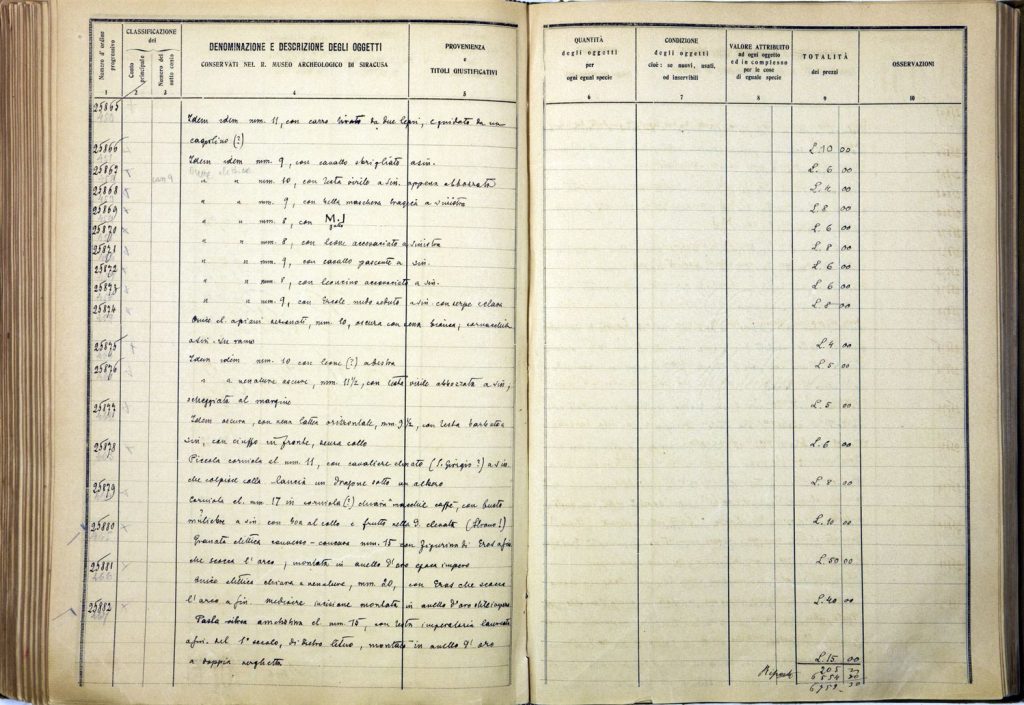 CLASSIFICAZIONE
dei
Numero d'ordine
progressivo
Conto
principale
Numero del
sotto conto
DENOMINAZIONE E DESCRIZIONE DEGLI OGGETTI
CONSERVATI NEL R. MUSEO ARCHEOLOGICO DI SIRACUSA
PROVENIENZA
e
TITOLI GIUSTIFICATIVI
QUANTITÀ
degli oggetti
per
ogni egual specie
CONDIZIONE
degli oggetti
cioè: se nuovi, usati,
od inservibili
VALORE ATTRIBUITO
ad ogni oggetto
ed in complesso
per le cose
di eguale specie
TOTALITÀ
dei prezzi
OSSERVAZIONI
1 2 3 4 5 6 7 8 9 10
25865
Idem idem mm. 11, con carro tirato da due lepri, e guidato da un
cagnolino (?) L. 10 00
25866
Idem idem mm. 9, con cavallo sbrigliato a sin. L. 6 00
25867
" " mm. 10, con testa virile a sin. appena abbozzata L. 4 00
25868
" " mm. 9, con bella maschera tragica a sinistra L. 8 00
25869
" " mm. 8, con M.J L. 6 00
25870
" " mm. 8, con leone accosciato a sinistra L. 8 00
25871
" " mm. 9, con cavallo pascente a sin. L. 6 00
25872
" " mm. 8, con leoncino accosciato a sin. L. 6 00
25873
" " mm. 9, con Ercole nudo seduto a sin. con serpe e clava L. 8 00
25874
Onice el. a piani sezionati, mm. 10, oscura con zona bianca; cornacchia
a sin. su ramo L. 4 00
25875
Idem idem mm. 10 con leone (?) a destra L. 5 00
25876
" a venature oscure, mm. 11½, con testa virile abbozzata a sin;
scheggiata al margine L. 5 00
25877
Idem oscura, con zona lattea orizzontale, mm. 9½, con testa barbata a
sin, con ciuffo in fronte, senza collo L. 6 00
25878
Piccola corniola el. mm. 11, con cavaliere elmato (S. Giorgio?) a sin.
che colpisce colla lancia un dragone sotto un albero L. 8 00
25879
Corniola el. mm. 17 in corniola (?) chiara macchie caffè, con busto
muliebre a sin con boa al collo e frutto nella d. elevata L. 10 00
25880
Granata ellittica convesso-concava mm. 15 con figurina di Eros a sin
che scocca l'arco, montata in anello d'oro epoca impero L. 50 00
25881
Onice ellittica chiara a venature, mm. 20, con Eros che scocca
l'arco a sin. mediocre incisione montata in anello d'oro stile impero L. 40 00
25882
Pasta vitrea ametistina el. mm. 15, con testa imperatoria laureata
a sin. del 1° secolo, di dietro letuo, montata in anello d'oro
a doppia verghetta L. 15 00
205
Riporto 6554
6759